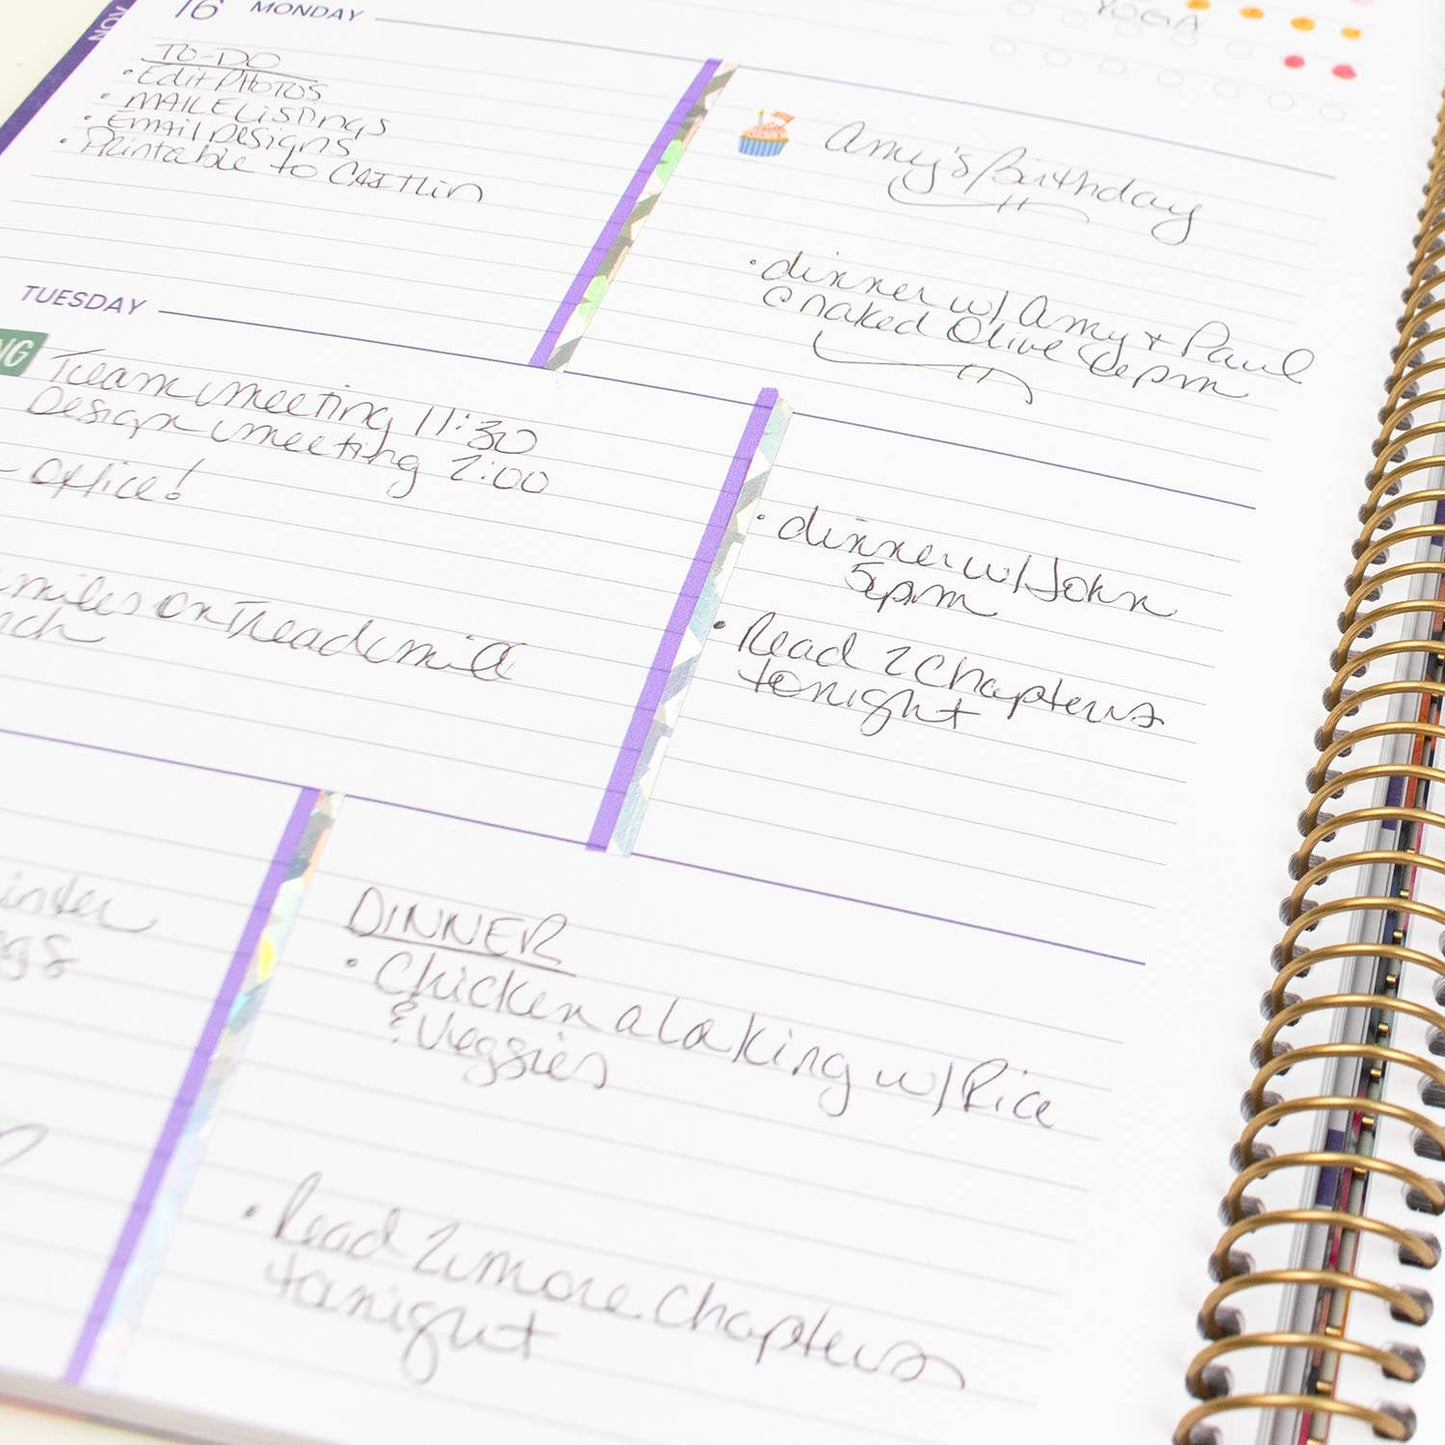 NOV
16 MONDAY
YOGA
TO-DO
• Edit PHOTOS
• MAIL E Listings
• EMAIL Designs
• Printable to CAITLIN
Amy's Birthday
• dinner w/ Amy + Paul
@ naked Olive 6pm
TUESDAY
NG
Team meeting 11:30
Design meeting 2:00
- Office!
miles on Treadmill
• dinner w/ John
5pm
• Read 2 Chapters
tonight
DINNER
• Chicken a la king w/ Rice
& Veggies
• Read 2 more Chapters
tonight